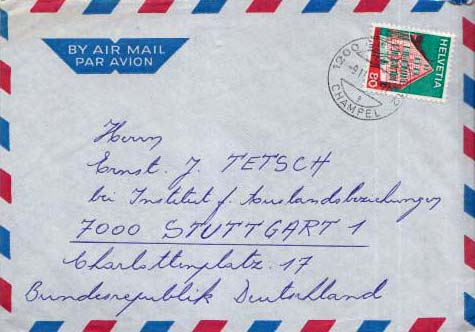 BY AIR MAIL
PAR AVION
HELVETIA
80
1200
CHAMPEL
Herrn
Ernst. J. TETSCH
bei Institut f. Auslandsbeziehungen
7000 STUTTGART 1
Charlottenplatz. 17
Bundesrepublik Deutschland